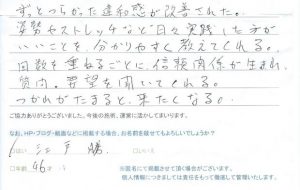 ずとつらかった違和感が改善された。
姿勢やストレッチなど日々実践した方が
いいことを、分かりやすく教えてくれる。
回数を重ねるごとに、信頼関係が生まれ、
質問、要望を聞いてくれる。
つかれがたまると、来たくなる。
ご協力ありがとうございました。今後の施術、運営に活かしてまいります。
なお、HP・ブログ・紙面などに掲載する場合、お名前を載せてもよろしいでしょうか?
はい 江戸 勝 □いいえ
□年齢 46才
※匿名にて掲載させて頂く場合がございます。
個人情報につきましては責任をもって徹底して管理いたします。